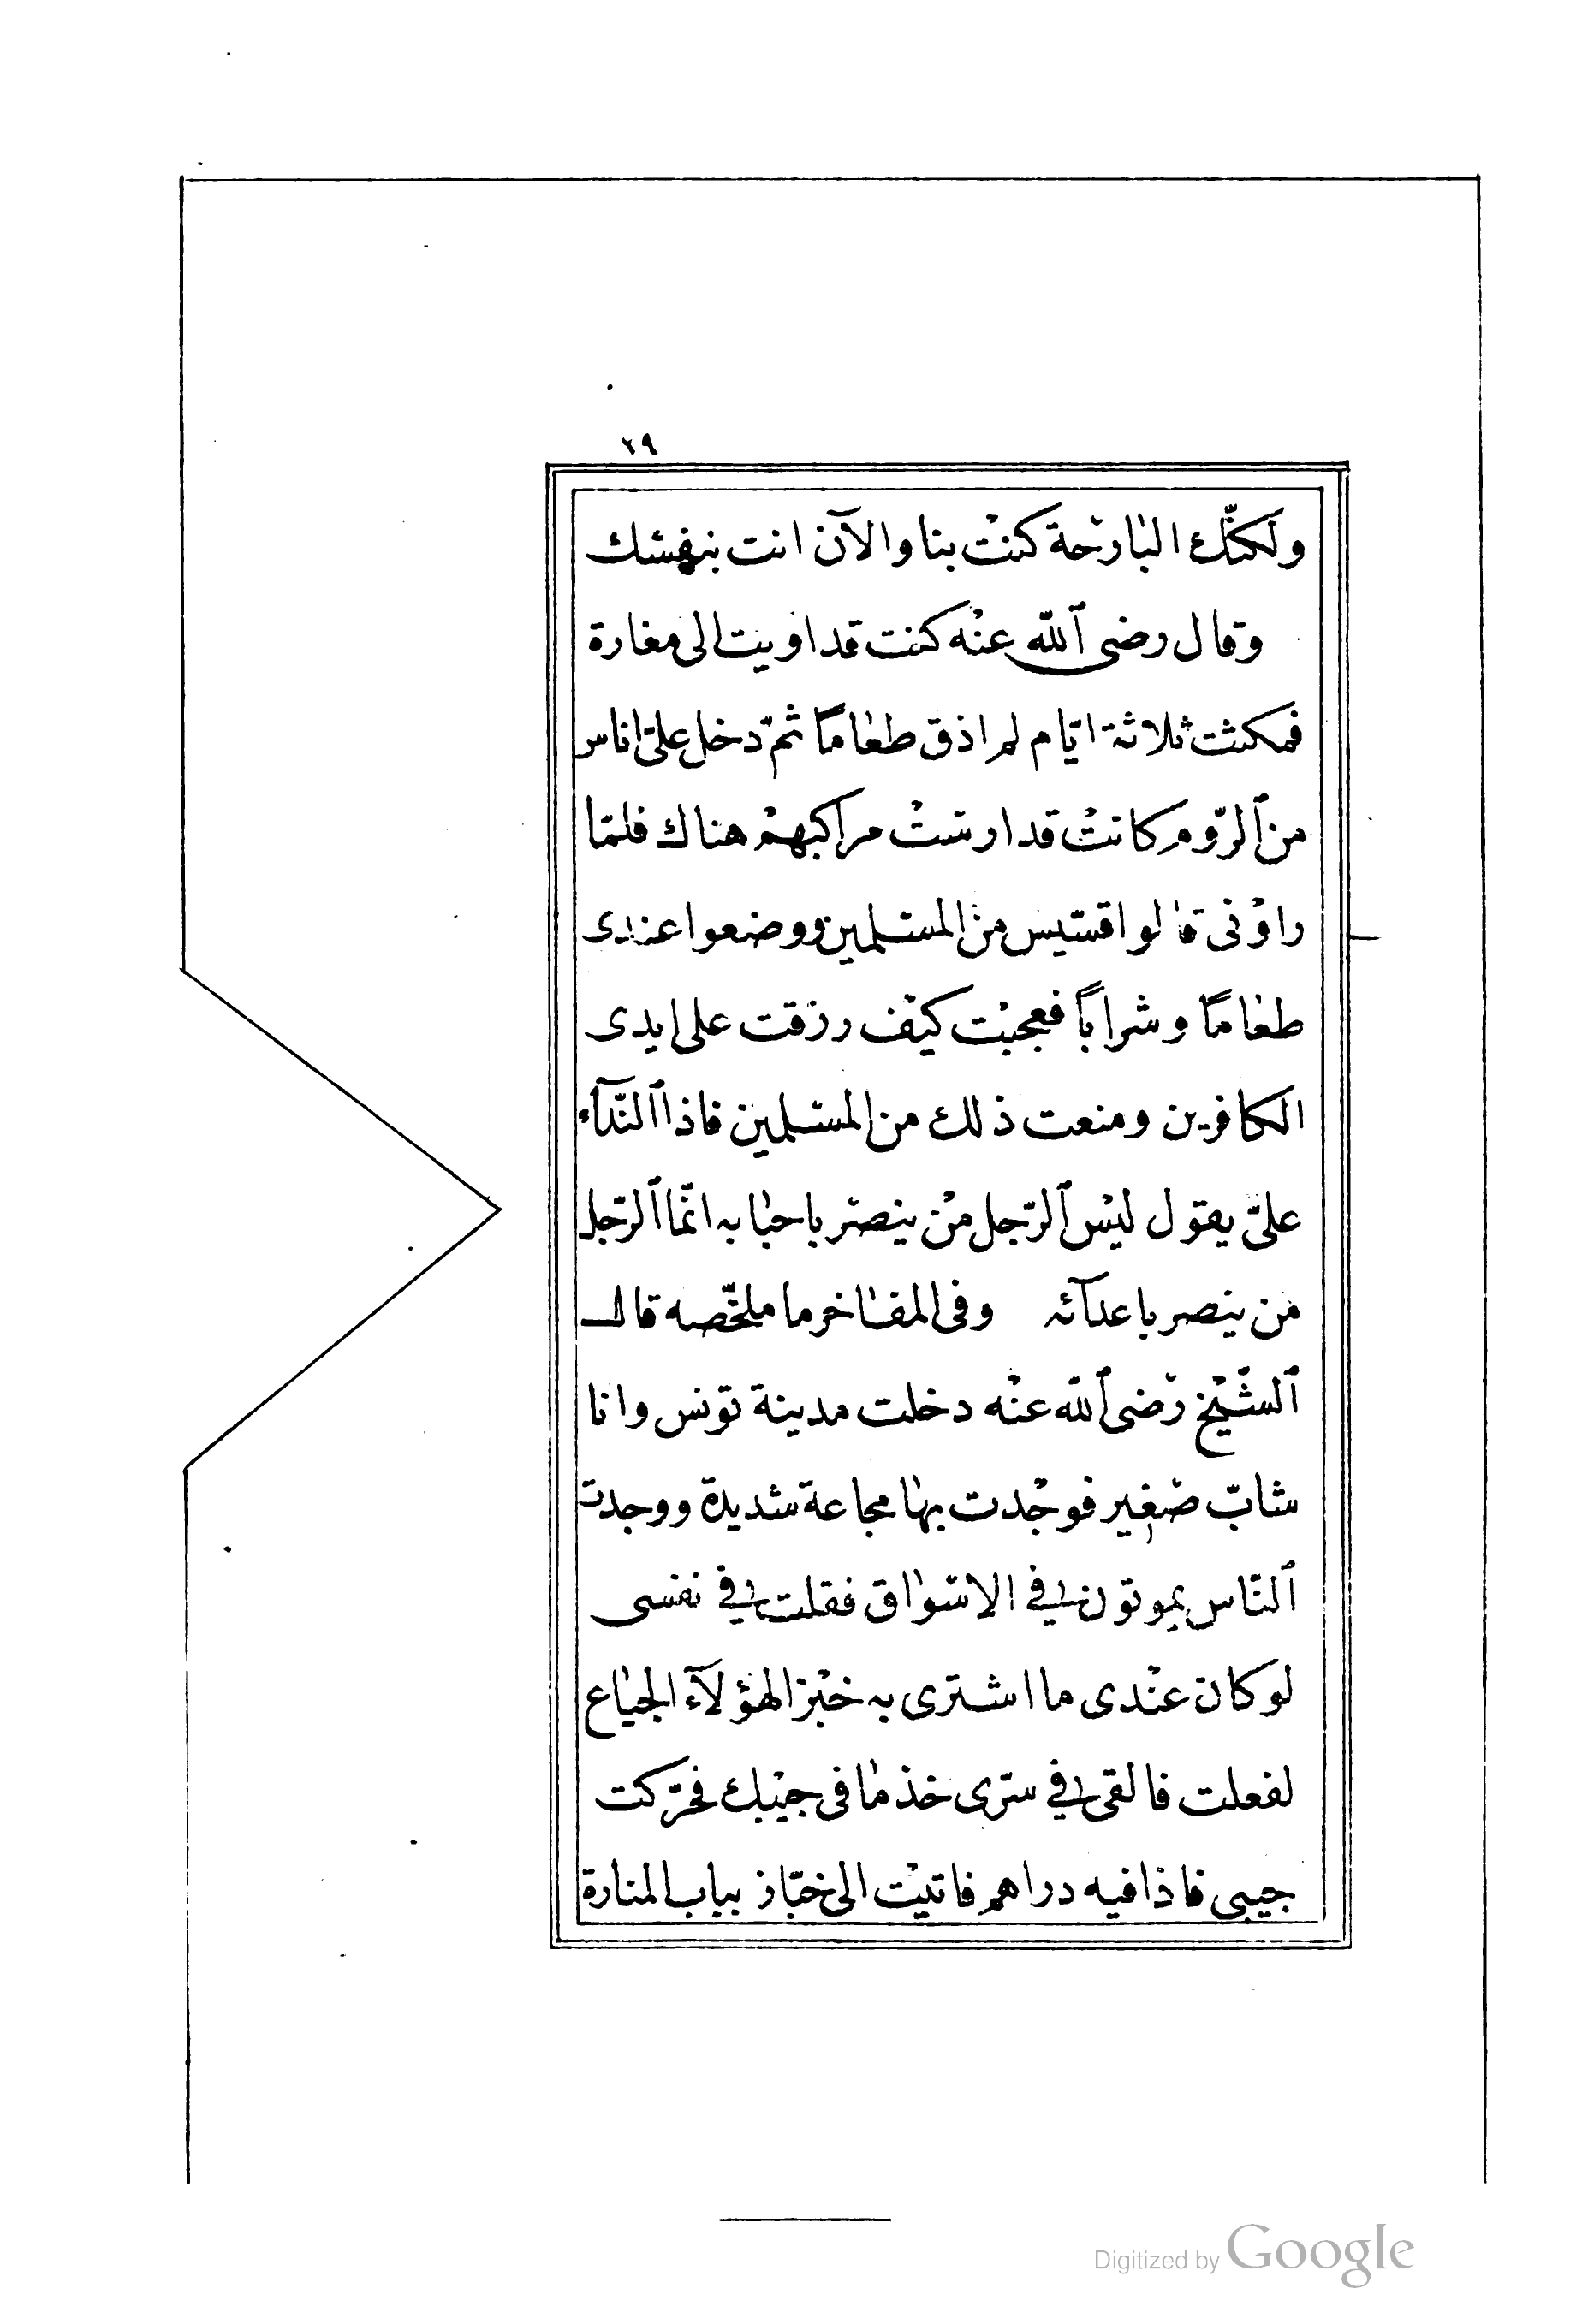 ٢٩
ولكنّك البارحة كنت بنا والآن انت بنفسك
وقال رضى ٱلله عنه كنت قد اويت الى مغارة
فمكثت ثلاثة ايّام لم اذق طعاماً ثمّ دخل علىّ اناس
من ٱلرّوم كانت قد ارست مراكبهم هناك فلمّا
راونى قالوا قسّيس من المسلمين ووضعوا عندى
طعاماً وشراباً فعجبت كيف رزقت على ايدى
الكافرين ومنعت ذلك من المسلمين فاذا ٱلنّدآء
علىّ يقول ليس ٱلرّجل من ينصر باحبابه انّما ٱلرّجل
من ينصر باعدآئه وفى المفاخر ما ملخّصه قال
ٱلشّيخ رضى ٱلله عنه دخلت مدينة تونس وانا
شابّ صغير فوجدت بها مجاعة شديدة ووجدت
ٱلنّاس يموتون في الاسواق فقلت في نفسى
لو كان عندى ما اشترى به خبزا لهؤلآء الجياع
لفعلت فالقى في سرّى خذ ما فى جيبك فحرّكت
جيبى فاذا فيه دراهم فاتيت الى خبّاز بباب المنارة
Digitized by Google